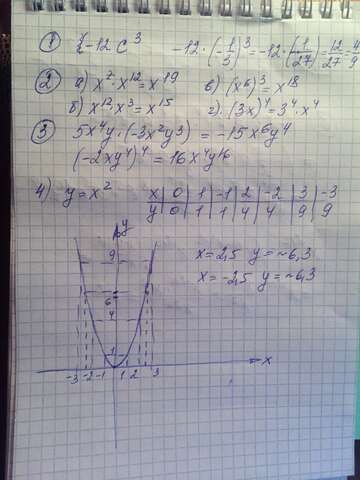 1 -12 c³ -12·(-1/3)³ = -12·(1/27) = 12/27 4/9
2 а) x⁷·x¹² = x¹⁹ в) (x⁶)³ = x¹⁸
б) x¹²·x³ = x¹⁵ г) (3x)⁴ = 3⁴·x⁴
3 5x⁴y·(-3x²y³) = -15x⁶y⁴
(-2xy⁴)⁴ = 16x⁴y¹⁶
4) y = x² x 0 1 -1 2 -2 3 -3
y 0 1 1 4 4 9 9
y
9
x = 2,5 y = ~6,3
x = -2,5 y = ~6,3
6
4
1
x
-3 -2 -1 1 2 3